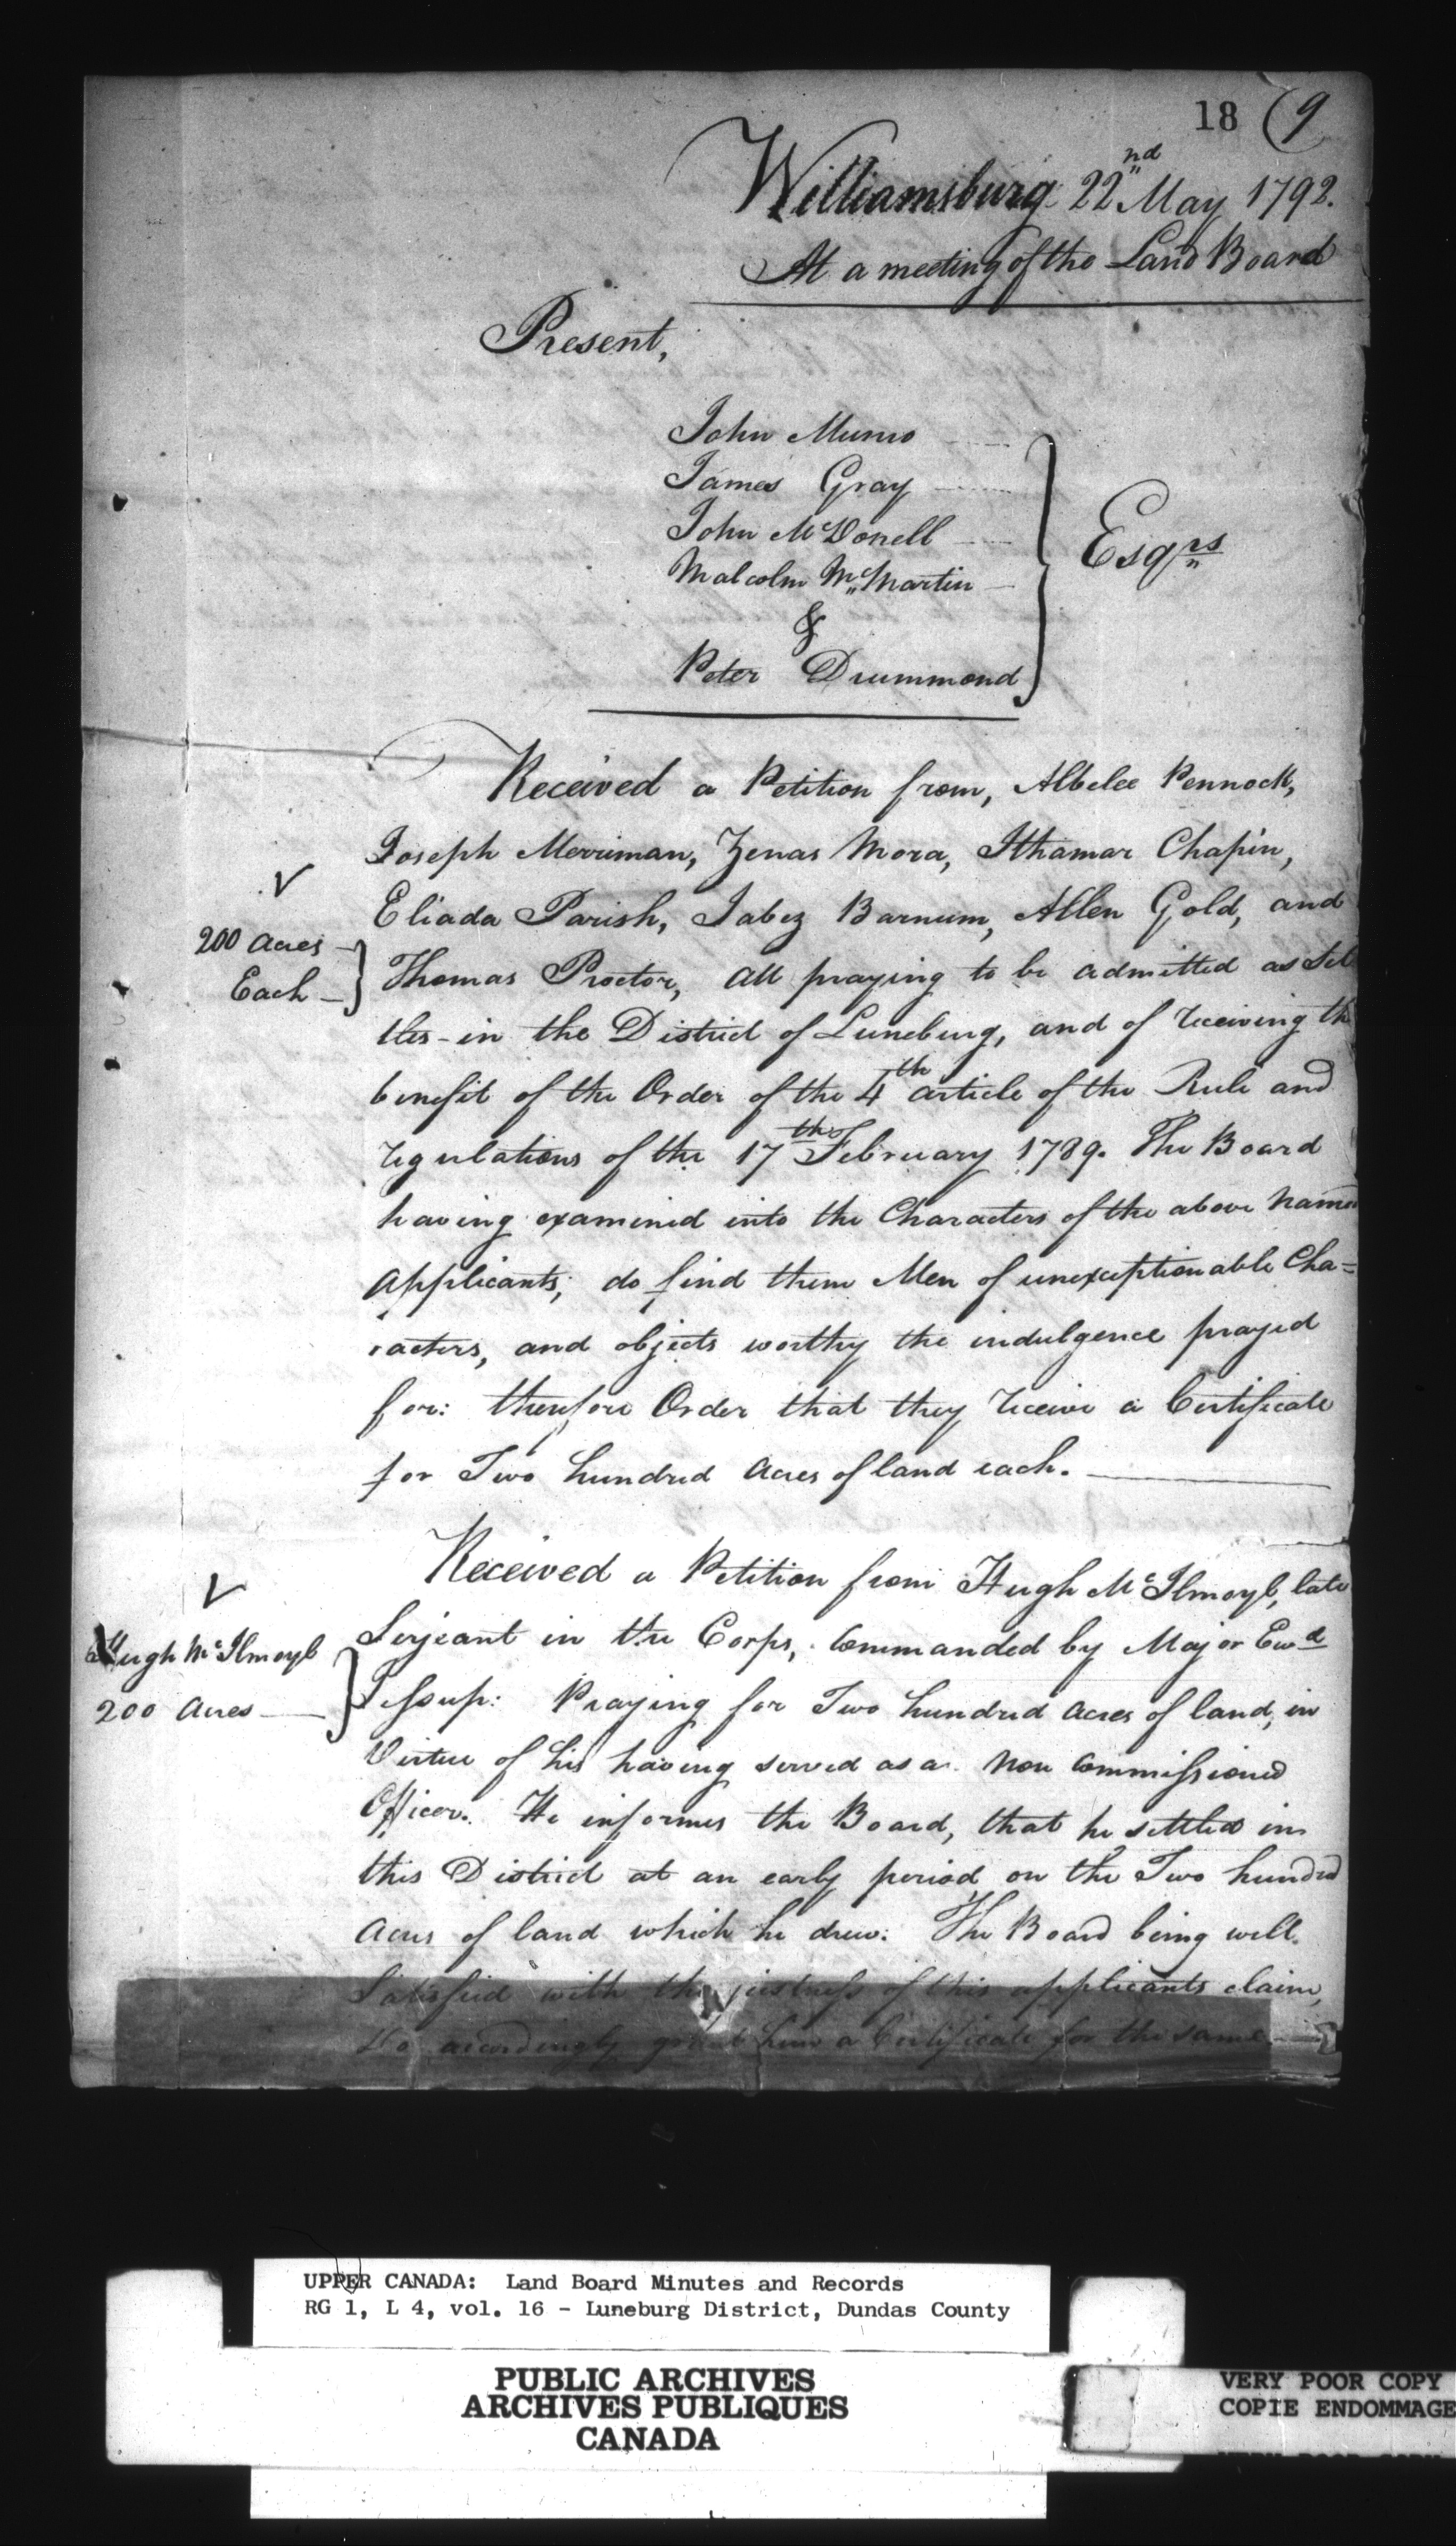 18 (9
Williamsburg 22nd May 1792.
At a meeting of the Land Board
Present,
John Munro
James Gray
John McDonell
Malcolm McMartin
&
Peter Drummond
Esqrs
Received a Petition from, Albelee Pennock,
Joseph Merriman, Zenas Mora, Ithamar Chapin,
Eliada Parish, Jabez Barnum, Allen Gold, and
200 Acres
Each
Thomas Proctor, all praying to be admitted as Set
tlers in the District of Luneburg, and of receiving the
benefit of the Order of the 4th article of the Rule and
regulations of the 17th February 1789. The Board
having examined into the Characters of the above named
Applicants; do find them Men of unexceptionable Cha=
racters, and objects worthy the indulgence prayed
for: therefore Order that they receive a Certificate
for Two hundred Acres of land each.
Received a Petition from Hugh McIlmoyl, late
Hugh McIlmoyl
200 Acres
Serjeant in the Corps, Commanded by Major Ewd
Jessup: Praying for Two hundred Acres of land, in
Virtue of his having served as a Non Commissioned
Officer. He informes the Board, that he settled in
this District at an early period on the Two hundred
Acres of land which he drew: The Board being well
Satisfied with the justness of this applicants claim,
Do accordingly grant him a Certificate for the same
UPPER CANADA: Land Board Minutes and Records
RG 1, L 4, vol. 16 - Luneburg District, Dundas County
PUBLIC ARCHIVES
ARCHIVES PUBLIQUES
CANADA
VERY POOR COPY
COPIE ENDOMMAGE